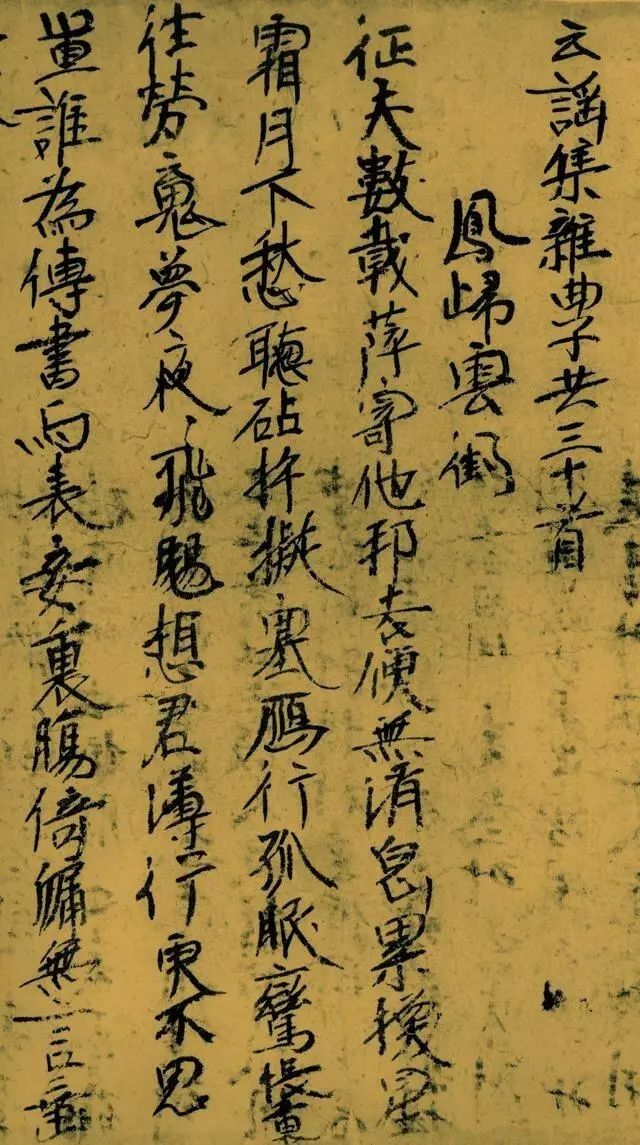 云謠集雜曲子共三十首
鳳歸雲
征夫數載萍寄他邦去便無消息累換星
霜月下愁聽砧杵擬塞鴈行孤眠鸞帳裏
往勞魂夢夜〻飛颺想君薄行更不思
量誰為傳書与表妾衷腸倚牖無言垂